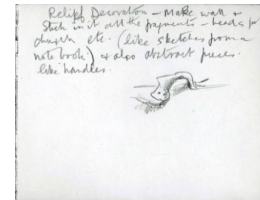 Relief Decoration – Make wall &
Stick in it all the fragments – heads for
church etc. (like sketches from a
note book) & also abstract pieces
like handles.